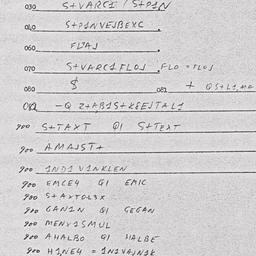 030 S+VARCI / S+PIN
040 S+PINVEJBEXC .
060 FLAJ .
070 S+VARCIFLOJ FLO = FLOJ
080 $ 081 +
082 -Q Z+ABIS+KEEJTALI
900 S+TAXT QI S+TEXT
900 AMAJST+
900 INDIVINKLEN
900 EMCE4 QI EMIC
900
900 GANIN QI GEGAN
900 MENVISMUL
900 AHALBO QI HALBE
900 HINE4 = INIVAJNIK